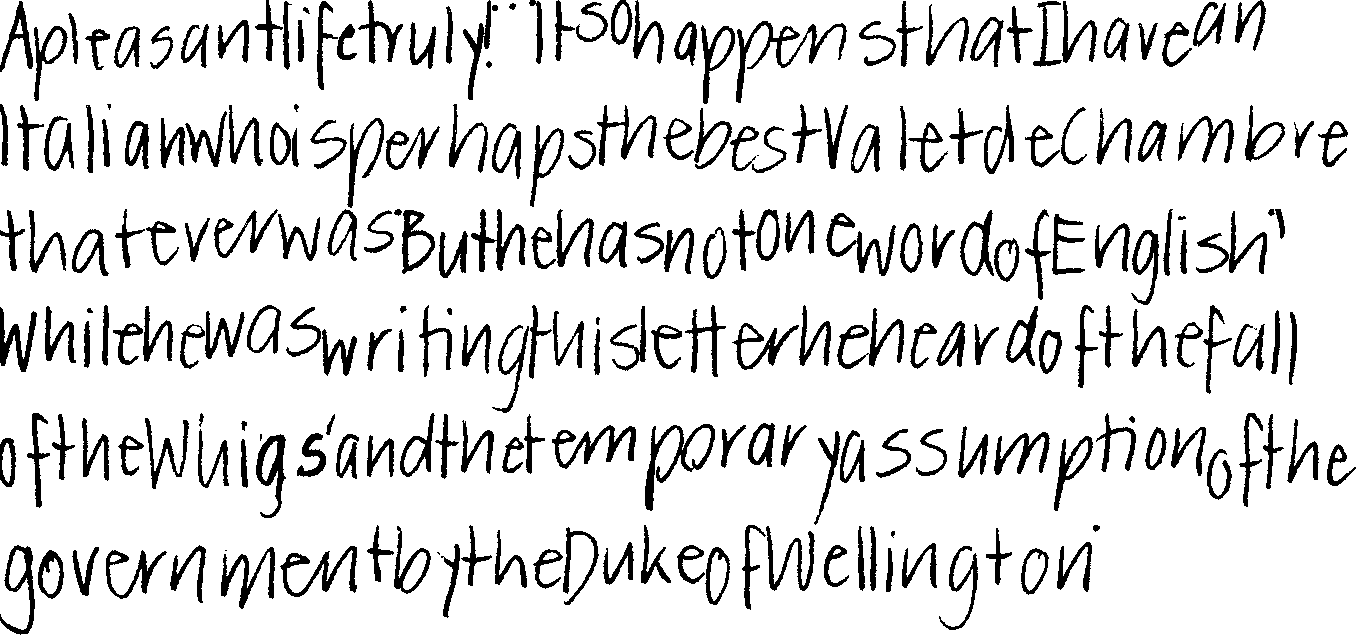 A pleasant life truly!" "It so happens that I have an
Italian who is perhaps the best Valet de Chambre
that ever was. But he has not one word of English"
While he was writing this letter he heard of the fall
of the Whigs' and the temporary assumption of the
government by the Duke of Wellington.